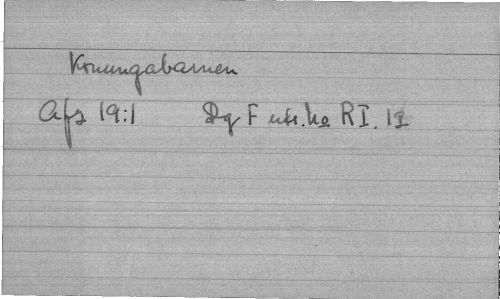 Konungabarnen
Afz 19:1 Dg F utr. ho RI. 12